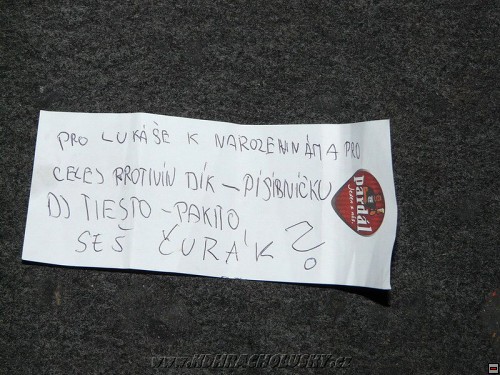 PRO LUKÁŠE K NAROZENINÁM A PRO
CELEJ PROTIVÍN DÍK – PÍSIŇIČKU
DJ TIESTO – PAKITO
SEŠ ČURÁK?
Pardál
www.KDMRACHOLUSKY.cz